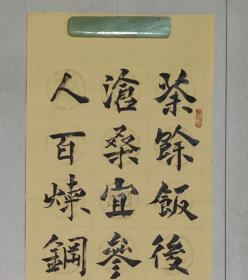 茶餘飯後
滄桑宜參
人百煉鋼